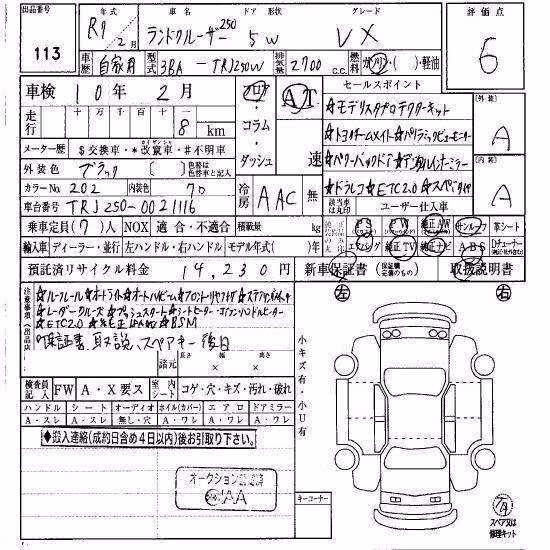 出品店番号 年式 車名 ドア 形状 グレード 評価点
113 R7年2月 ランドクルーザー250 5W VX 6
車歴 自家用 型式 3BA-TRJ250W 排気量 2700 C.C. 燃料 ガソリン・( )・軽油
車検 10年2月 フロア・コラム・ダッシュ AT 速 セールスポイント
走行 十万千百十一 8 km
★モデリスタプロテクターキット
メーター歴 $交換車・*改竄車・#不明車
外装色 ブラック 色替は色替車と記入
★パワーバックドア
カラーNo. 202 内装色 70
★ドラレコ★ETC2.0★
冷房 AAC 無
外装 A
内装 A
該当車は丸印 ユーザー仕入車
車台番号 TRJ250-0021116
乗車定員(7)人 NOX 適合・不適合 積載量 kg
PS PW 純正AW サンルーフ 革シート
輸入車 ディーラー・並行 左ハンドル・右ハンドル モデル年式( )年
エアバッグ 純正TV 純正ナビ ABS
預託済リサイクル料金 14,230円 新車保証書 取扱説明書
注意事項(出品店)
★ルーフレール★オートライト★オートハイビーム★フロント・リヤフォグ★
★レーダークルーズ★プッシュスタート★シートヒーター
★ETC2.0 ★BSM
保証書、取説、スペアキー後日
諸元 長さ 幅 高さ × ×
左 右
小キズ有・小U有
検査員記入 FW A・X要ス 室内シート コゲ・穴・キズ・汚れ・破れ
ハンドル シート オーディオ ホイル(カバー) エアロ ドアミラー
A・スレ A・スレ 無し・穴 A・ワレ A・ワレ A・ワレ
◆搬入連絡(成約日含め4日以内)後お引取り下さい。
オークション
キーコーナー
スペア又は修理キット